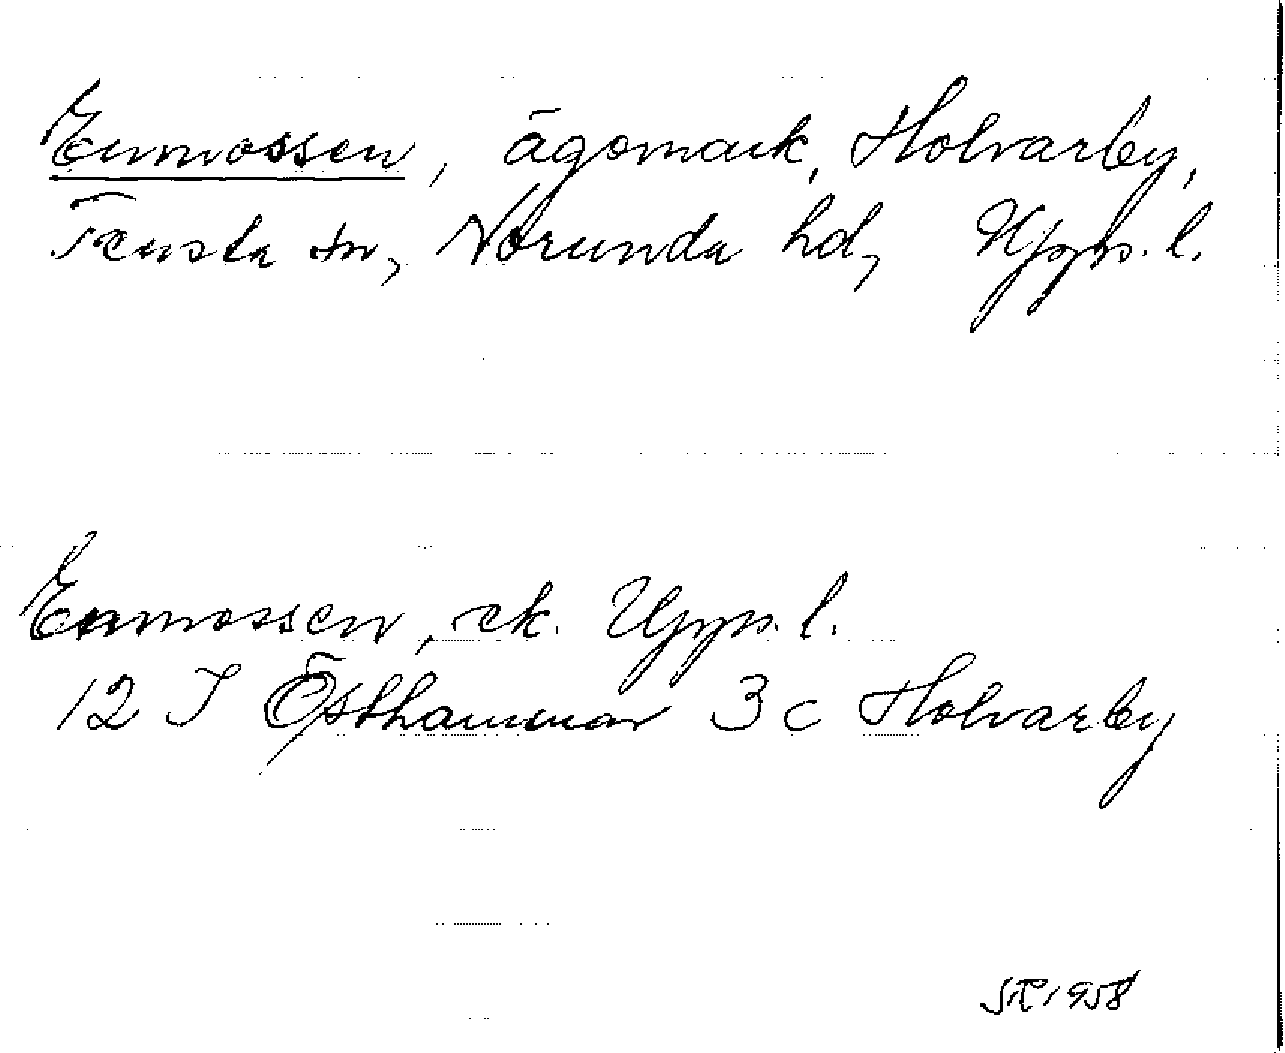 Enmossen, ägomark, Holvarby,
Tensta sn, Norunda hd, Upps. l.
Enmossen, ek. Upps. l.
12 I Östhammar 3 c Holvarby
1958